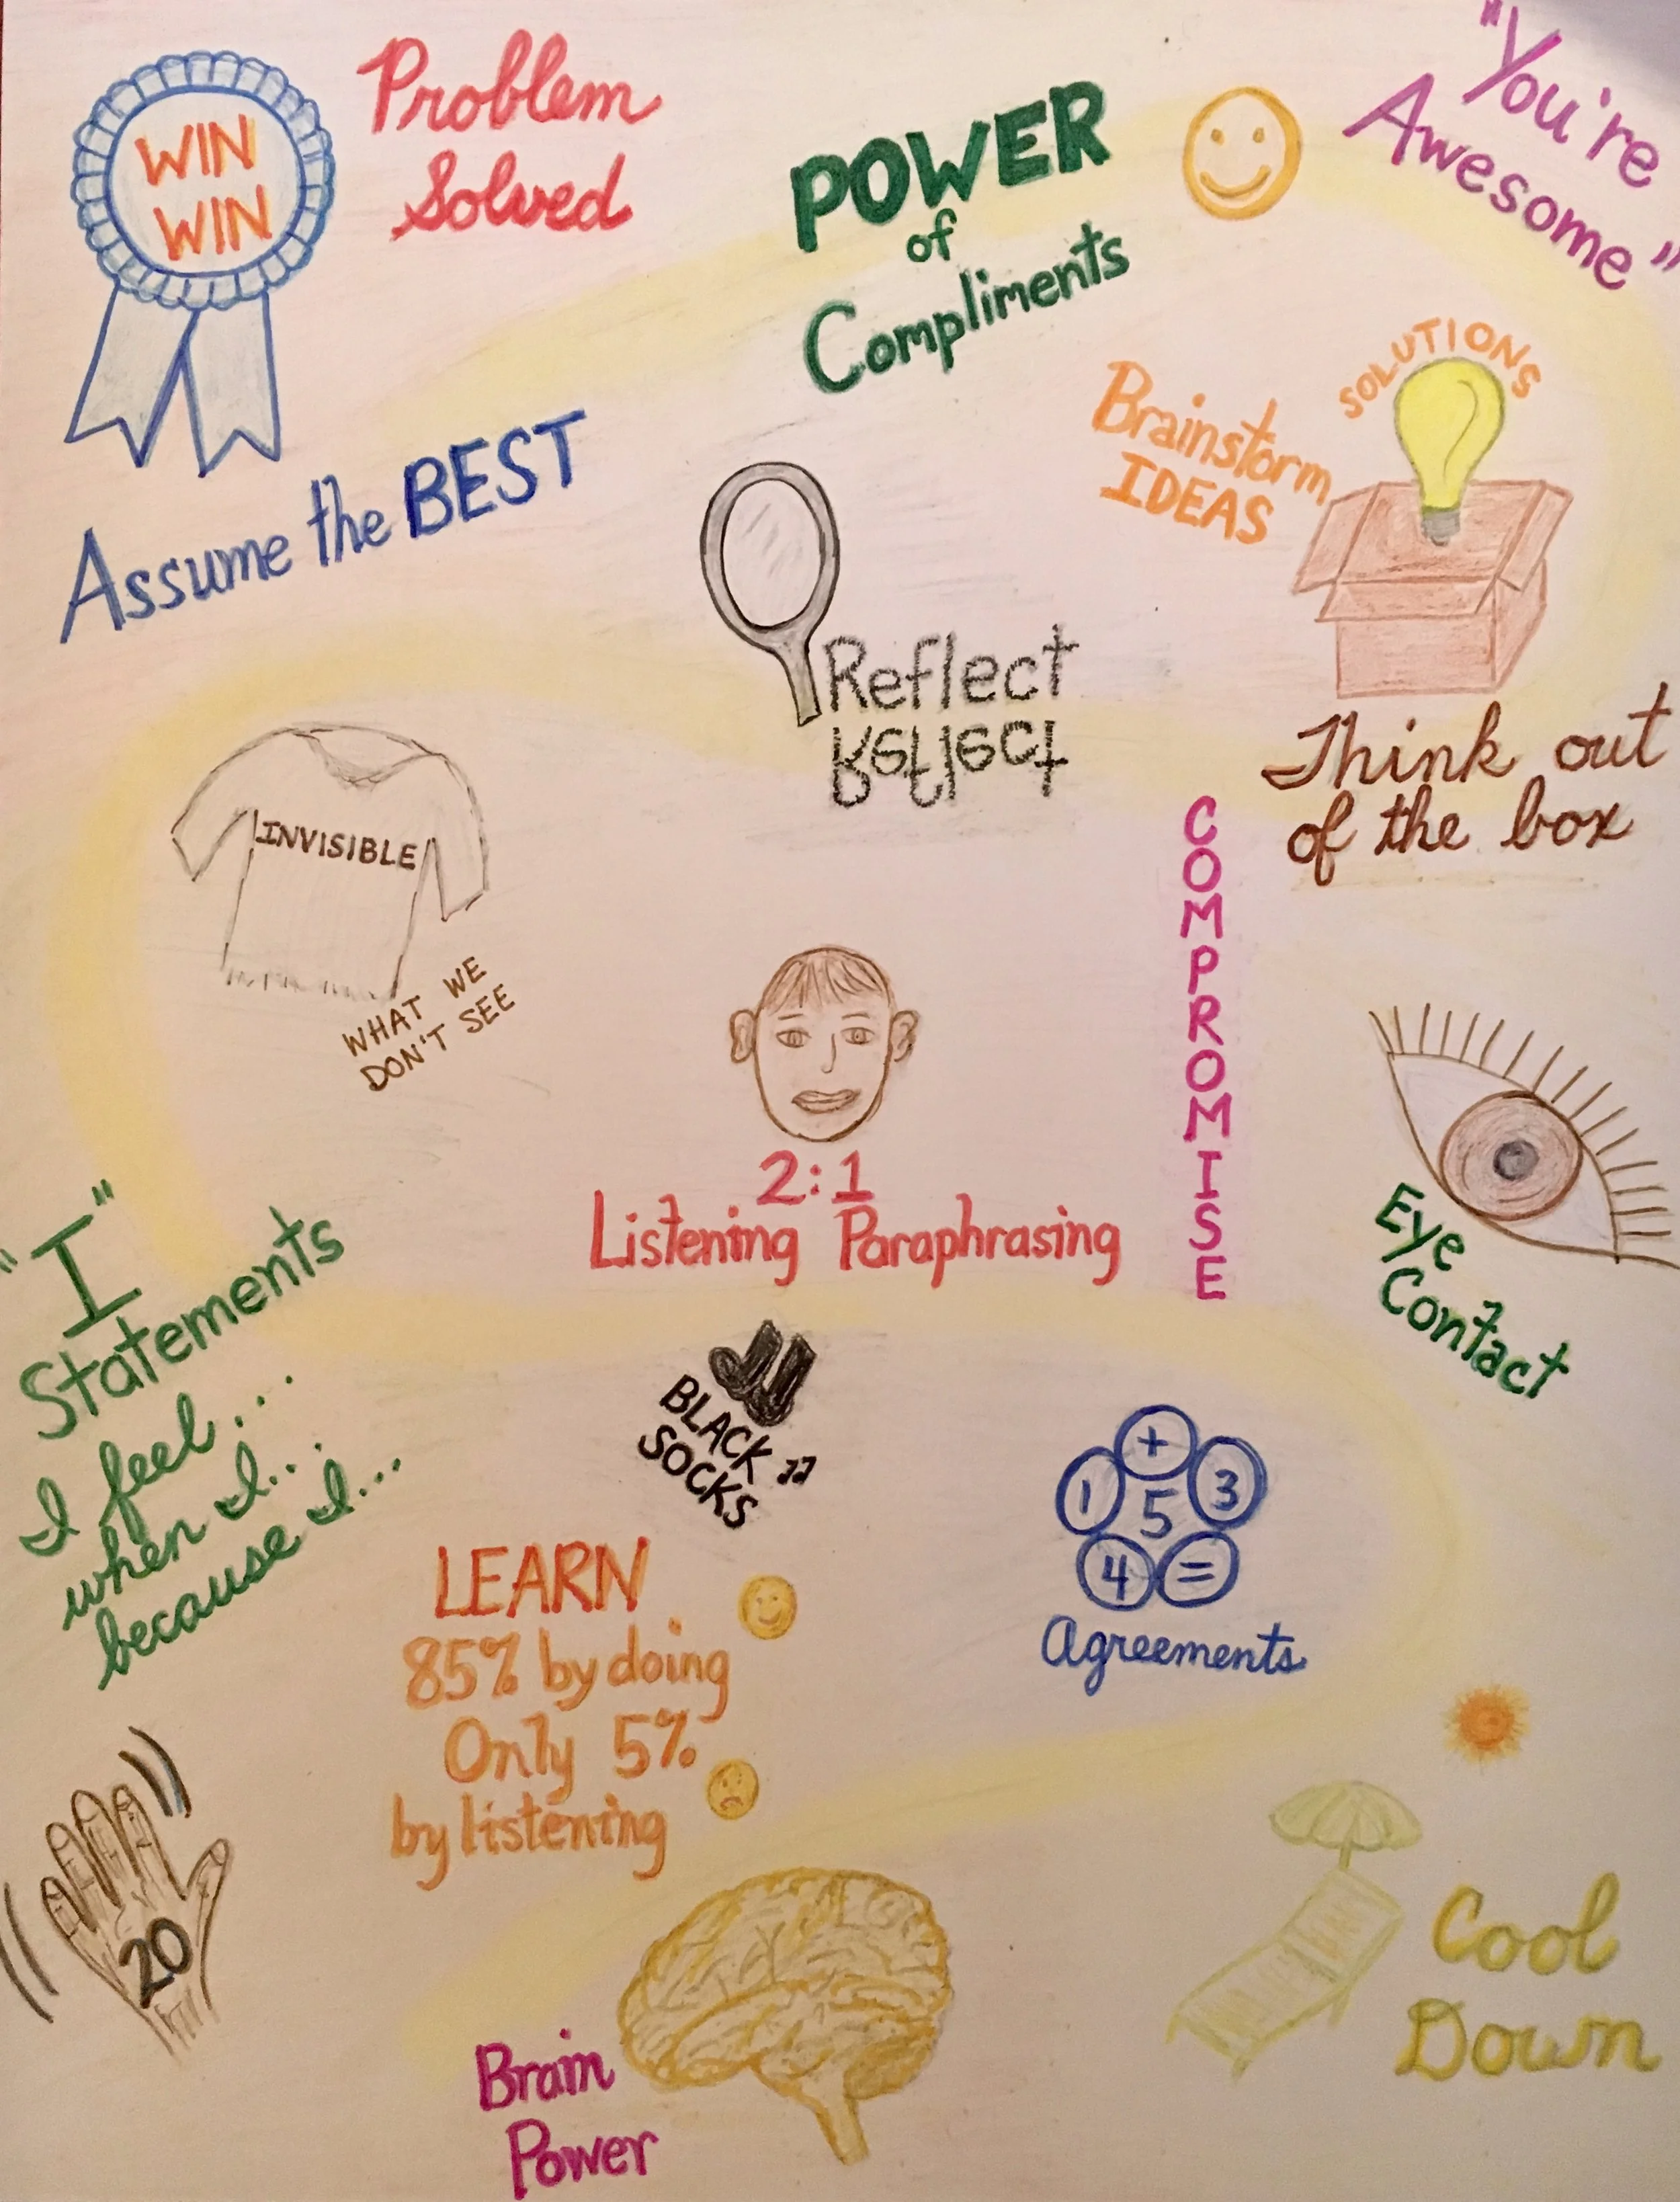 WIN
WIN
Problem
Solved
POWER
of
Compliments
"You're
Awesome"
Assume the BEST
Brainstorm
IDEAS
SOLUTIONS
Think out
of the box
Reflect
Reflect
INVISIBLE
WHAT WE
DON'T SEE
COMPROMISE
2:1
Listening Paraphrasing
Eye
Contact
"I"
Statements
I feel...
when I...
because I...
BLACK
SOCKS
+
1
5
3
4
=
Agreements
LEARN
85% by doing
Only 5%
by listening
20
Brain
Power
Cool
Down